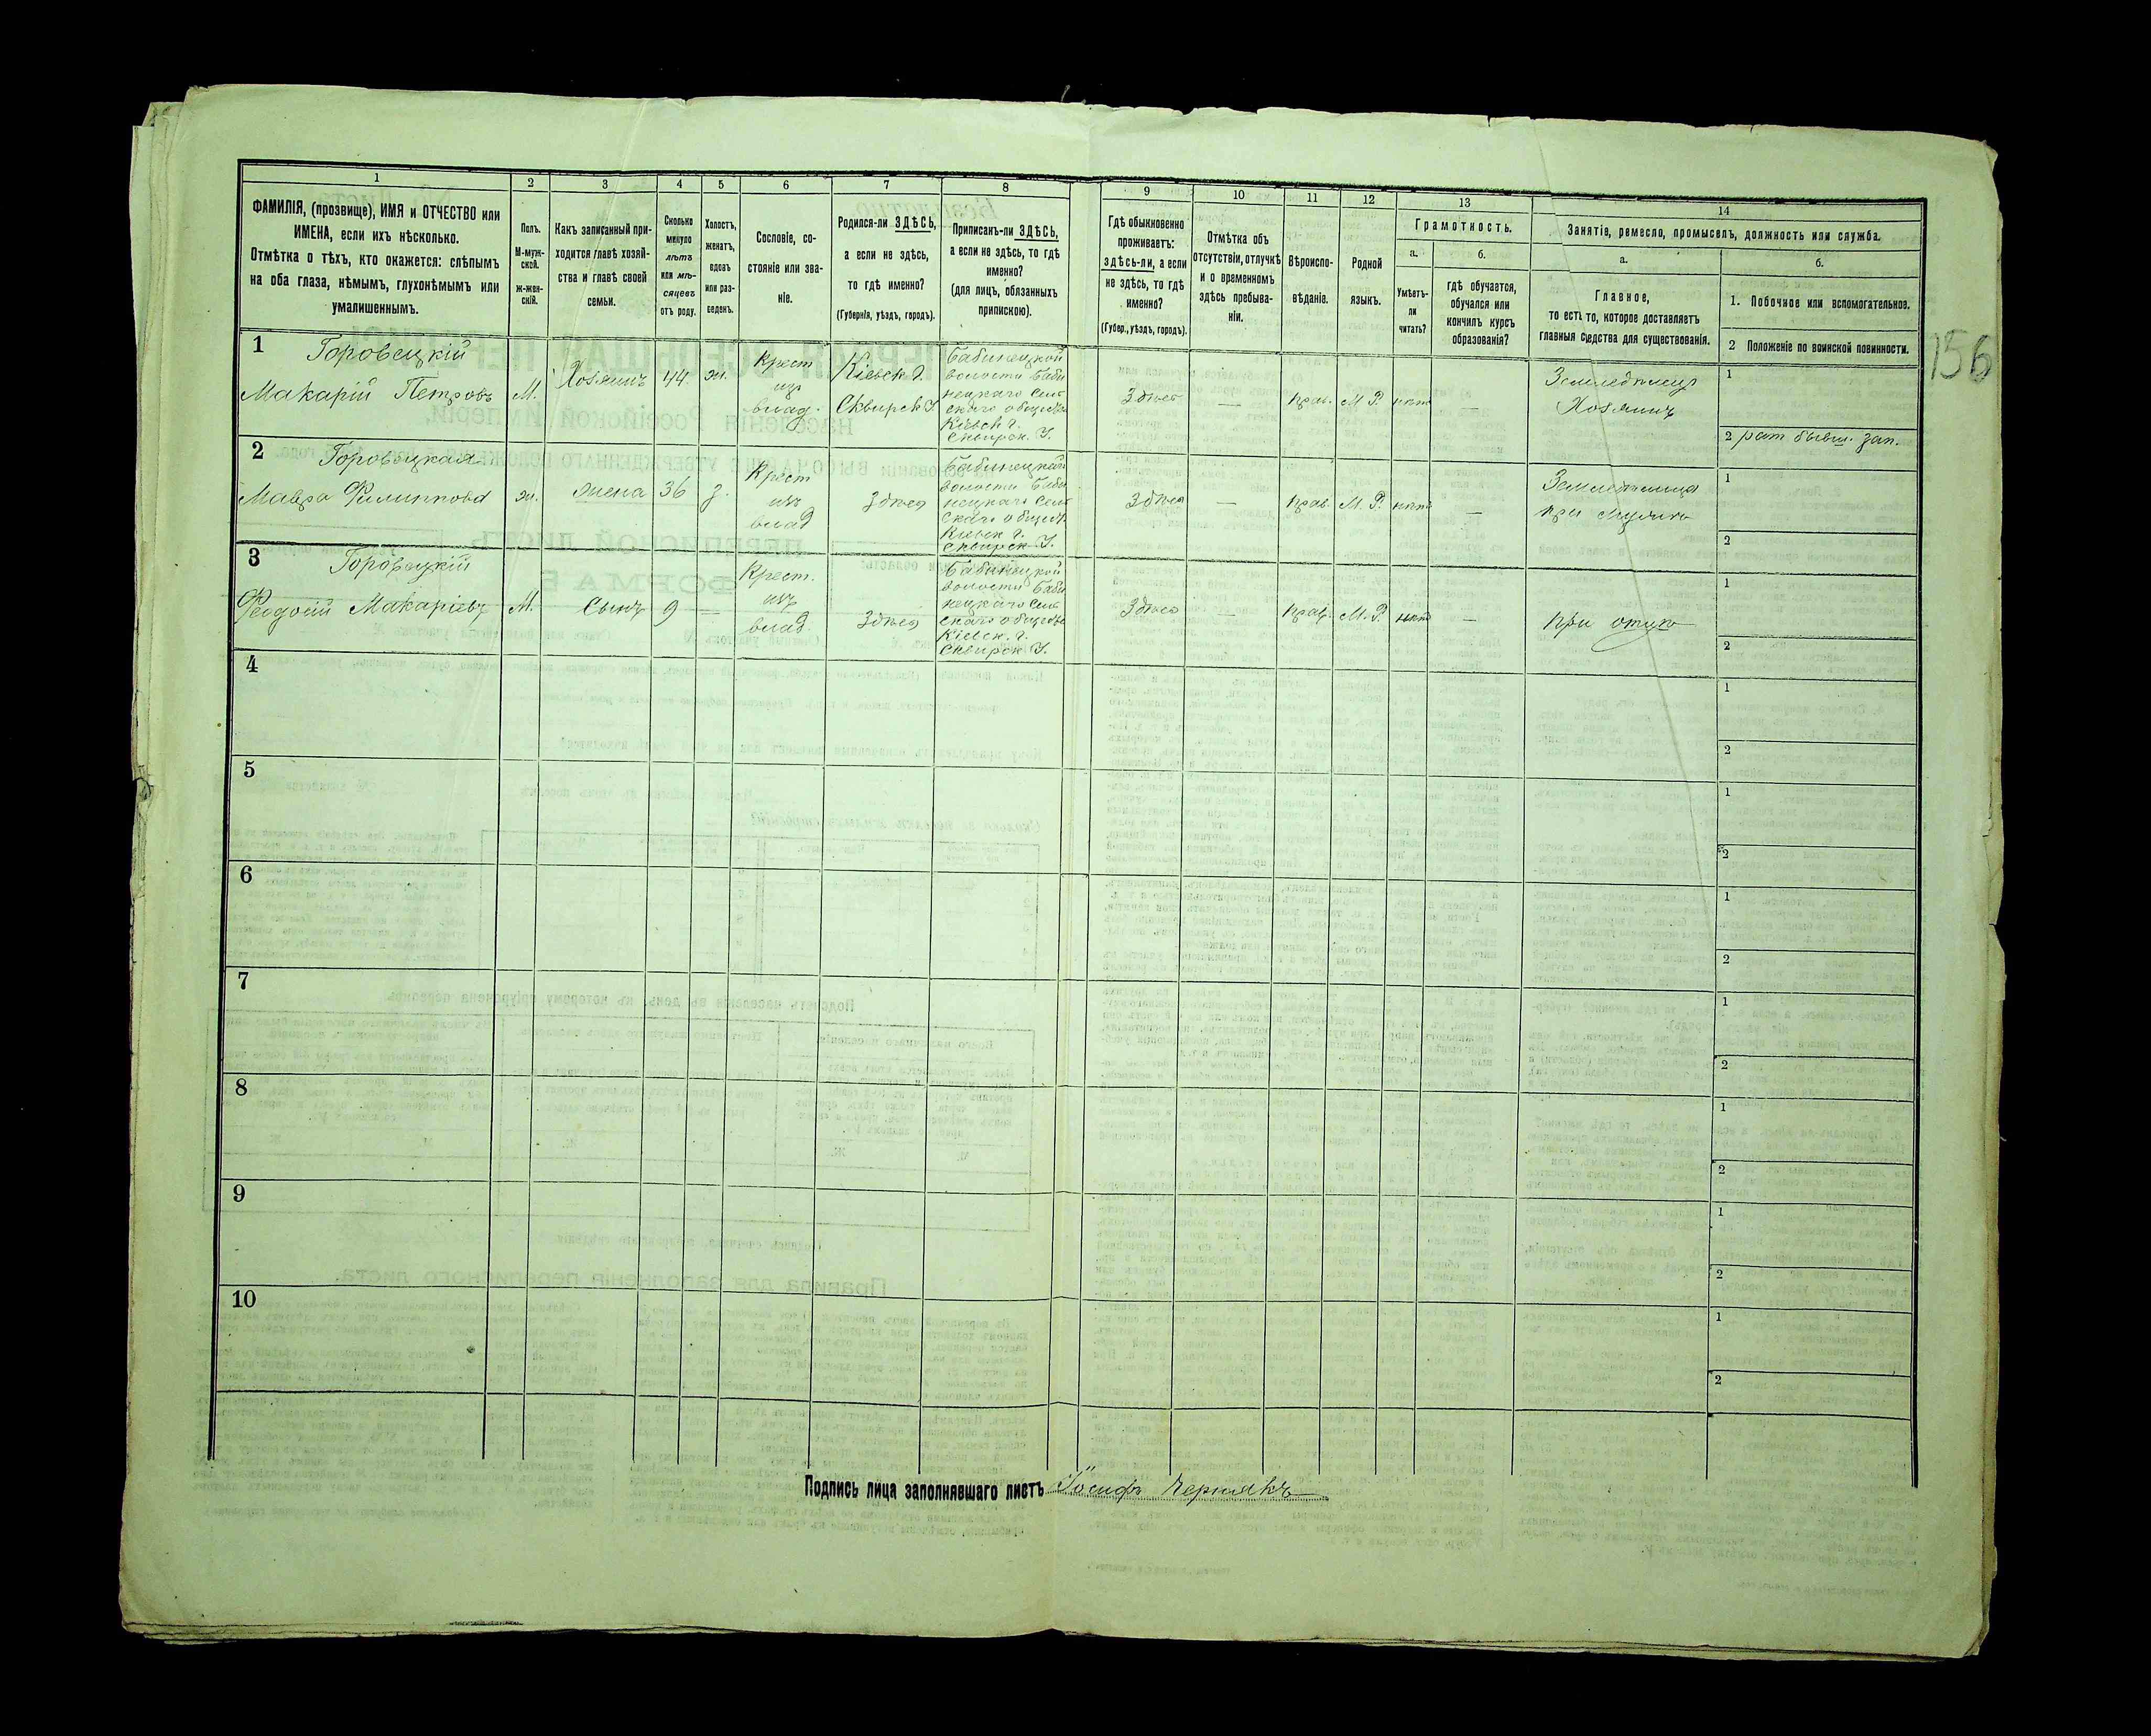 1
ФАМИЛІЯ, (прозвище), ИМЯ и ОТЧЕСТВО или
ИМЕНА, если ихъ нѣсколько.
Отмѣтка о тѣхъ, кто окажется: слѣпымъ
на оба глаза, нѣмымъ, глухонѣмымъ или
умалишеннымъ.
2
Полъ.
М-муж-
ской.
ж-жен-
скій.
3
Какъ записанный при-
ходится главѣ хозяй-
ства и главѣ своей
семьи.
4
Сколько
минуло
лѣтъ
или мѣ-
сяцевъ
отъ роду.
5
Холостъ,
женатъ,
вдовъ
или раз-
веденъ.
6
Сословіе, со-
стояніе или зва-
ніе.
7
Родился-ли ЗДѢСЬ,
а если не здѣсь,
то гдѣ именно?
(Губернія, уѣздъ, городъ).
8
Приписанъ-ли ЗДѢСЬ,
а если не здѣсь, то гдѣ
именно?
(для лицъ, обязанныхъ
припискою).
9
Гдѣ обыкновенно
проживаетъ:
здѣсь-ли, а если
не здѣсь, то гдѣ
именно?
(Губер., уѣздъ, городъ).
10
Отмѣтка объ
отсутствіи, отлучкѣ
и о временномъ
здѣсь пребыва-
ніи.
11
Вѣроиспо-
вѣданіе.
12
Родной
языкъ.
13
Грамотность.
а.
Умѣетъ-
ли
читать?
б.
гдѣ обучается,
обучался или
кончилъ курсъ
образованія?
14
Занятіе, ремесло, промыселъ, должность или служба.
а.
Главное,
то есть то, которое доставляетъ
главныя средства для существованія.
б.
1. Побочное или вспомогательное.
2 Положеніе по воинской повинности.
156
1
Горовецкій
Макарій Петровъ
М.
Хозяинъ
44
ж.
Крест
изъ
влад.
Кіевск г.
Сквирск У.
Бабинецкой
волости Баби
нецкаго Сель
скаго обществ
Кіевск г.
Сквирск. У.
Здѣсь
—
прав.
М Р.
нѣтъ
—
Земледѣлецъ
Хозяинъ
1
2 рат бывш. зап.
2
Горовецкая
Мавра Филиппова
ж.
жена
36
з.
Крест
изъ
влад
Здѣсь
Бабинецкой
волости Баби
нецкаго Сель
скаго обществ
Кіевск г.
Сквирск У.
Здѣсь
—
прав.
М. Р.
нѣтъ
—
Земледѣлица
при мужѣ
1
2
3
Горовецкій
Феодосій Макаріевъ
М.
Сынъ
9
—
Крест.
изъ
влад.
Здѣсь
Бабинецкой
волости Баби
нецкаго Сель
скаго обществ
Кіевск. г.
Сквирск У.
Здѣсь
—
прав.
М. Р.
нѣтъ
—
при отцѣ
1
2
4
1
2
5
1
2
6
1
2
7
1
2
8
1
2
9
1
2
10
1
2
Подпись лица заполнявшаго листъ Іосифъ Чернякъ